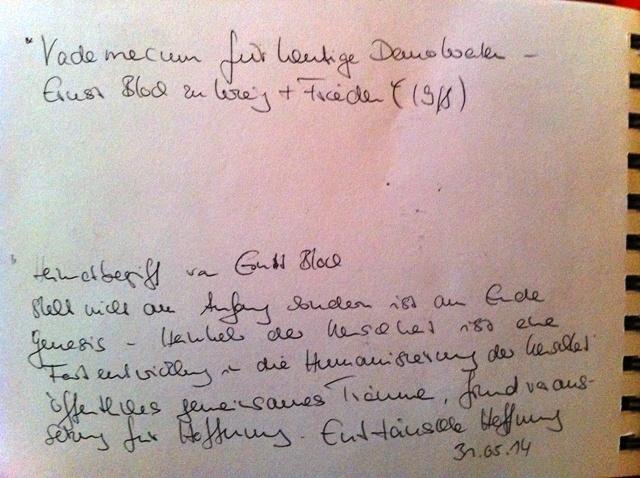 "Vademecum für heutige Demokraten –
Ernst Bloch zu Krieg + Frieden
Heimatbegriff von Ernst Bloch
steht nicht am Anfang sondern ist am Ende
Genesis – der Menschheit ist eine
Fortentwicklung in die Humanisierung der Menschheit
öffentliches gemeinsames Träume, Grundvoraus-
setzung für Hoffnung. Enttäuschte Hoffnung
31.05.14